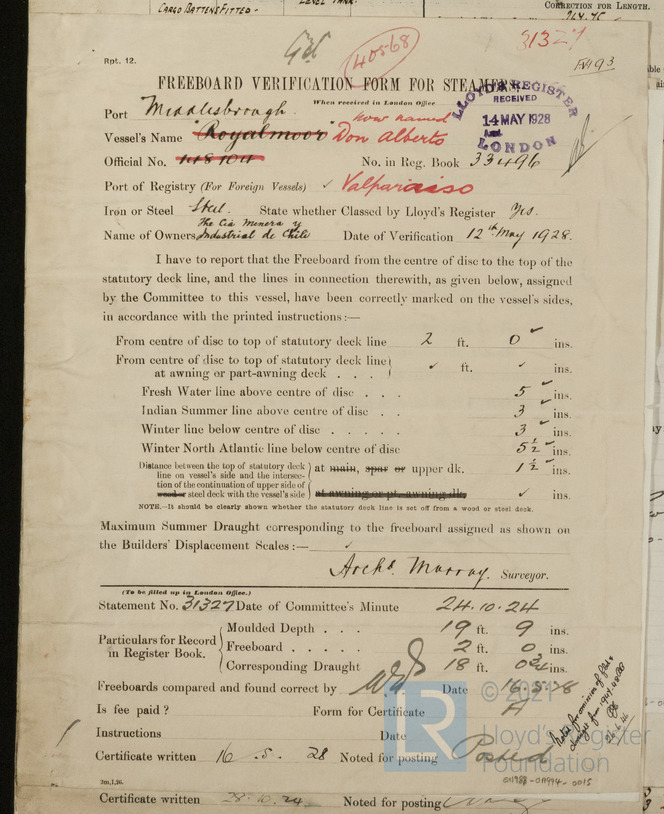 CARGO BATTENS FITTED -
LEVEL TANK.
CORRECTION FOR LENGTH.
Rpt. 12.
40568
31327
FREEBOARD VERIFICATION FORM FOR STEAMERS
When received in London Office
LLOYD'S REGISTER
RECEIVED
14 MAY 1928
LONDON
Port Middlesbrough.
now named
Vessel's Name "Royalmoor" Don Alberto
Official No. 148104 No. in Reg. Book 33496
Port of Registry (For Foreign Vessels) ✓ Valparaiso
Iron or Steel Steel. State whether Classed by Lloyd's Register Yes.
The Cia Minera y
Name of Owners Industrial de Chile Date of Verification 12th May 1928.
I have to report that the Freeboard from the centre of disc to the top of the
statutory deck line, and the lines in connection therewith, as given below, assigned
by the Committee to this vessel, have been correctly marked on the vessel's sides,
in accordance with the printed instructions :—
From centre of disc to top of statutory deck line 2 ft. 0 ✓ ins.
From centre of disc to top of statutory deck line
at awning or part-awning deck . . . ✓ ft. ✓ ins.
Fresh Water line above centre of disc . . . 5 ✓ ins.
Indian Summer line above centre of disc . . 3 ✓ ins.
Winter line below centre of disc . . . . . 3 ✓ ins.
Winter North Atlantic line below centre of disc 5½ ✓ ins.
Distance between the top of statutory deck
line on vessel's side and the intersec-
tion of the continuation of upper side of
wood or steel deck with the vessel's side
at main, spar or upper dk. 1½ ✓ ins.
at awning or pt. awning dk. ✓ ins.
NOTE.—It should be clearly shown whether the statutory deck line is set off from a wood or steel deck.
Maximum Summer Draught corresponding to the freeboard assigned as shown on
the Builders' Displacement Scales :— ✓
Archd. Murray. Surveyor.
(To be filled up in London Office.)
Statement No. 31327 Date of Committee's Minute 24.10.24
Particulars for Record
in Register Book.
Moulded Depth . . . 19 ft. 9 ins.
Freeboard . . . . . 2 ft. 0 ins.
Corresponding Draught 18 ft. 0¾ ins.
Freeboards compared and found correct by Date 16.5.28
Is fee paid ? Form for Certificate A
Instructions Date
Certificate written 16 . 5 . 28 Noted for posting Posted
2m,1,26.
Certificate written 28.10.24 Noted for posting
© 2021
LR
Lloyd's Register
Foundation
011988-011994-0015